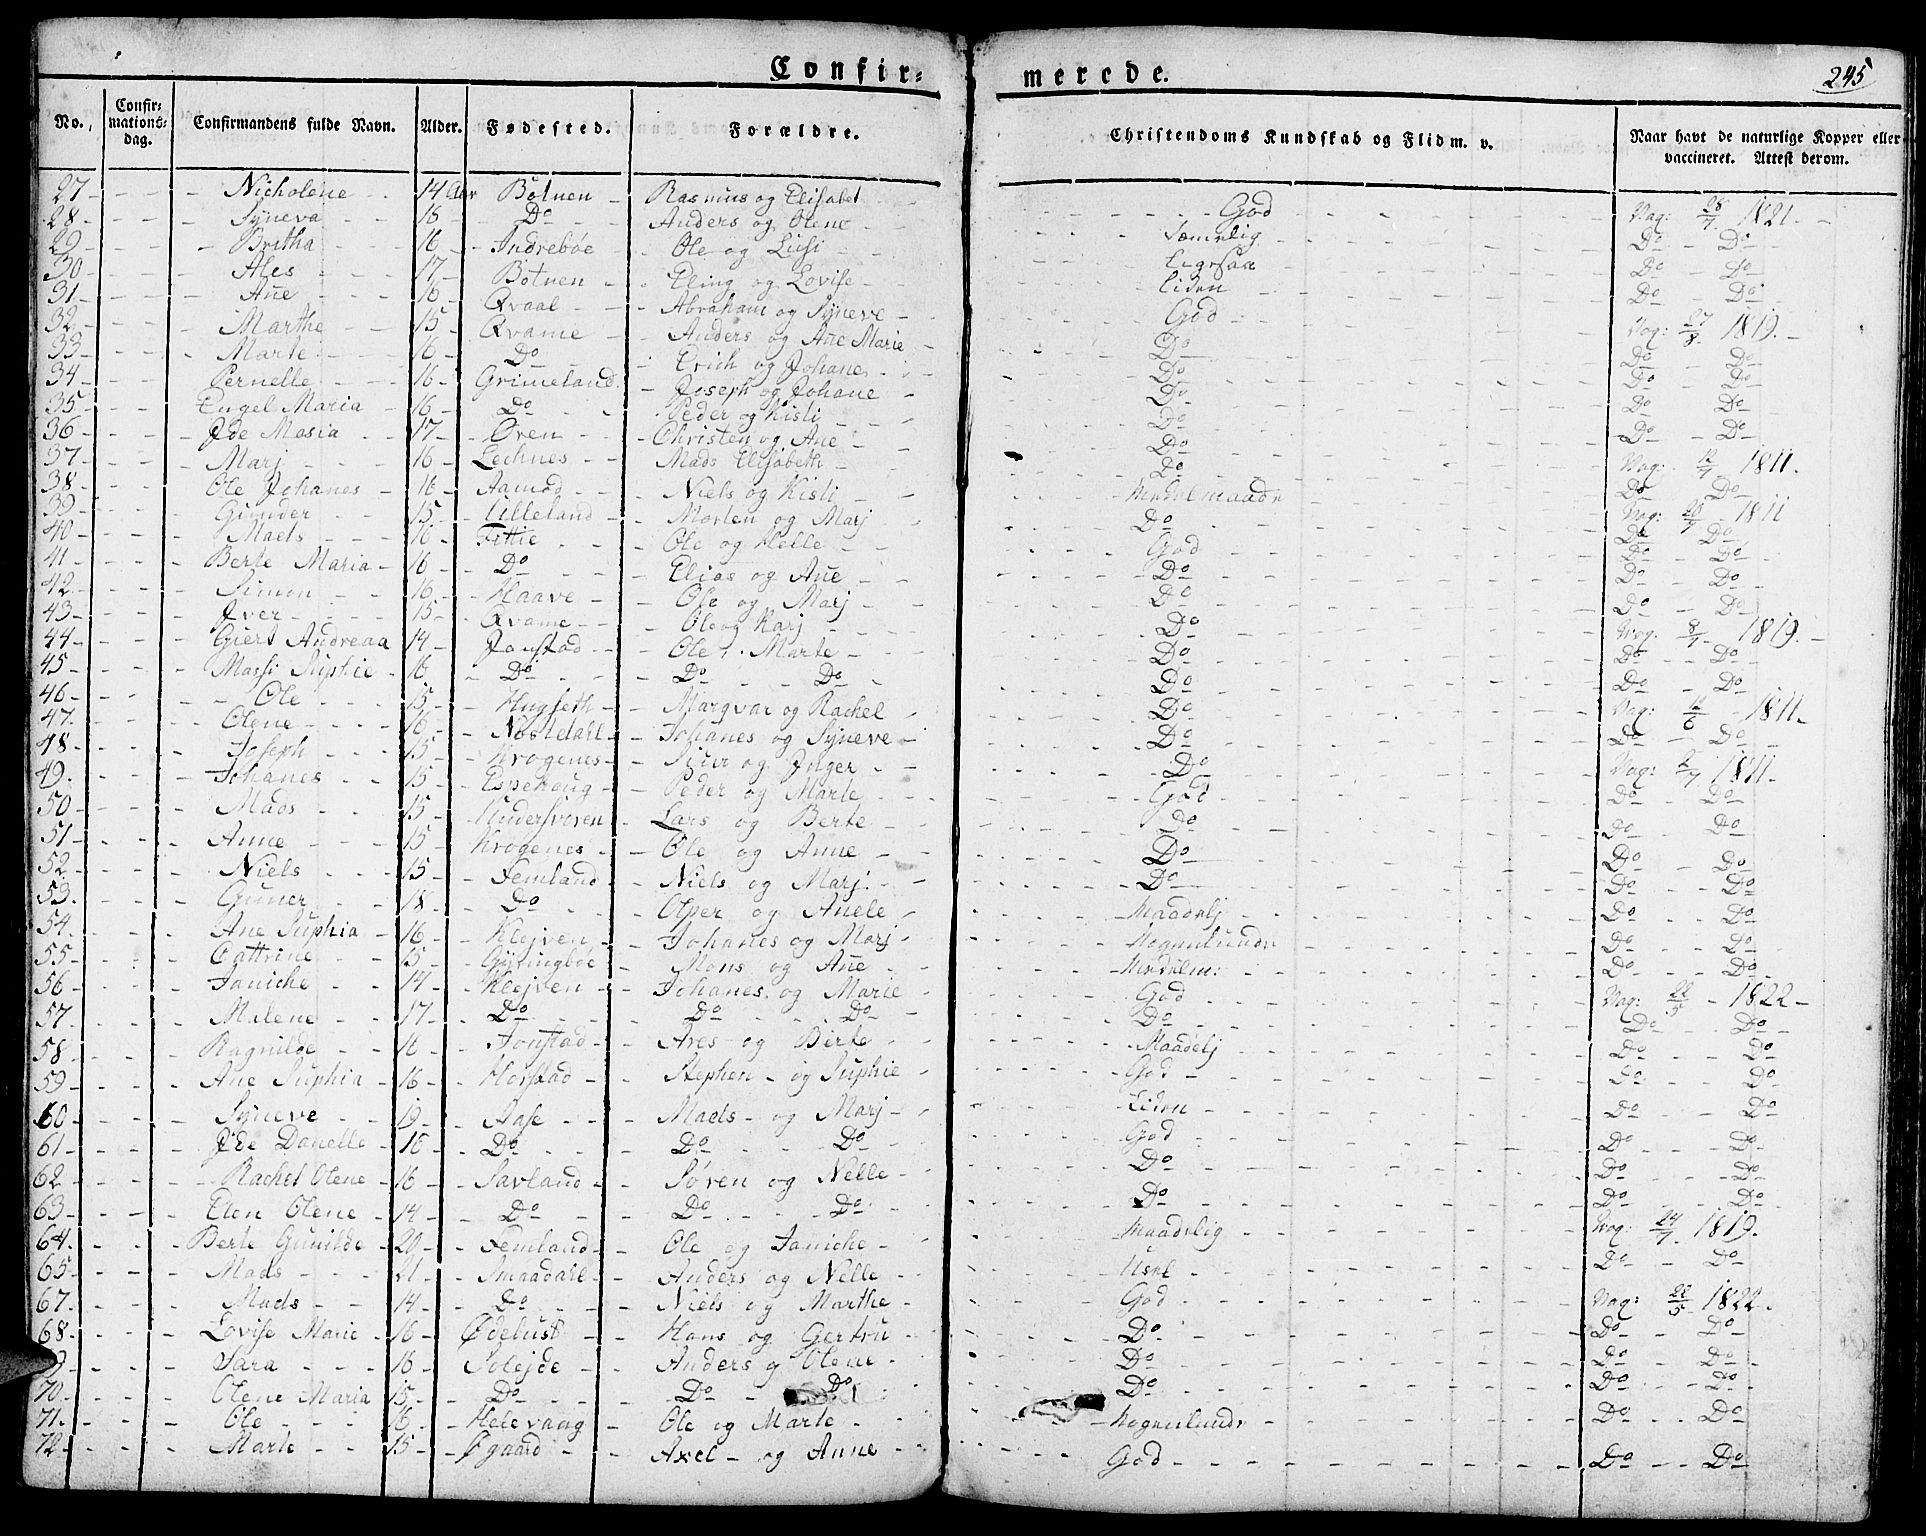 Confir= merede. 245
No. Confir= mations= dag. Confirmandens fulde Navn. Alder. Fødested. Forældre. Christendoms Kundskab og Flid m. v. Naar havt de naturlige Kopper eller vaccineret. Attest derom.
27 Nicholene 14 Aar Botnen Rasmus og Elisabet God Vag: 28/7 1821.
28 Syneva 16 Do Anders og Olene Do Do
29 Britha 16 Indrebøe Ole og Lusi Ligesaa Do Do
30 Ales 17 Botnen Eling og Lovise Liden Do Do
31 Ane 16 Qvaal Abraham og Syneve God Vag: 27/8 1819.
32 Marthe 15 Qvame Anders og Ane Marie Do Do Do
33 Marte 16 Do Erich og Johane Do Do Do
34 Pernelle 16 Grimeland Joseph og Johane Do Do Do
35 Engel Maria 16 Do Peder og Kisti Do Do Do
36 Jde Maria 17 Øren Christen og Ane Do Vag: 12/7 1811.
37 Marj 16 Lechnes Mads Elisabeth Do Do Do
38 Ole Johanes 16 Aamod Niels og Kisti Vag: 1811
39 Gunder 15 Lilleland Morten og Marj Do Do Do
40 Maels 16 Fittie Ole og Helle God Do Do
41 Berte Maria 16 Do Elias og Ane Do Do Do
42 Simon 16 Haave Ole og Marj Do Do Do
43 Jver 15 Qvame Ole og Karj Do Vag: 8/7 1819.
44 Giert Andreaa 14 Jonstad Ole, Marte Do Do Do
45 Massi Suphie 16 Do Do Do Do Do Do
46 Ole 15 Hugseth Marqvar og Rachel Do Vag: 12/6 1811
47. Olene 16 Nostdahl Johanes og Syneve Do Do Do
48 Joseph 15 Krogenes Siur og Jnger Do Vag: 2/7 1811.
49. Johanes 15 Espehoug Peder og Marte God Do Do
50 Mads 15 Lars og Berte Do Do Do
51 Anne 15 Krogenes Ole og Anne Do Do Do
52. Niels 15 Femland Niels og Marj Do Do Do
53. Guner 18 Do Olper og Anele Maadelj Do Do
54. Ane Suphia 16 Klejven Johanes og Marj Nogenlunde Do Do
55 Cattrine 15 Gytingbøe Mons og Ane Do Do
56 Janiche 14 Klejven Johanes og Marie God Vag: 22/5 1822
57. Malene 17 Do Do Do Do Do Do
58 Ragnilde 16 Jonstad Ares og Birte Maadelj Do Do
59 Ane Suphia 16 Horstad Stephen og Suphie God Do Do
60 Syneve 19 Aase Maels og Marj Liden Do Do
61 Jde Danelle 16 Do Do Do God Do Do
62 Rachel Olene 16 Savland Søren og Nelle Do Do Do
63 Elen Olene 14 Do Do Do Do Do Do
64. Berte Gunilde 20 Femland Ole og Janiche Maadelig Vag: 24/7 1819.
65 Mads 21 Smaadahl Anders og Nelle Usel Do Do
67. Mads 14 Do Niels og Marthe God Vag: 22/5 1822.
68 Lovise Marie 16 Ødelust Hans og Gertru Do Do Do
9 Sara 16 Solejde Anders og Olene Do Do Do
70. Olene Maria 15 Do Do Do Do Do Do
71. Ole 16 Helevaag Ole og Marte Nogenlunde Do Do
72 Marte 15 Øgaard Axel og Anne God Do Do